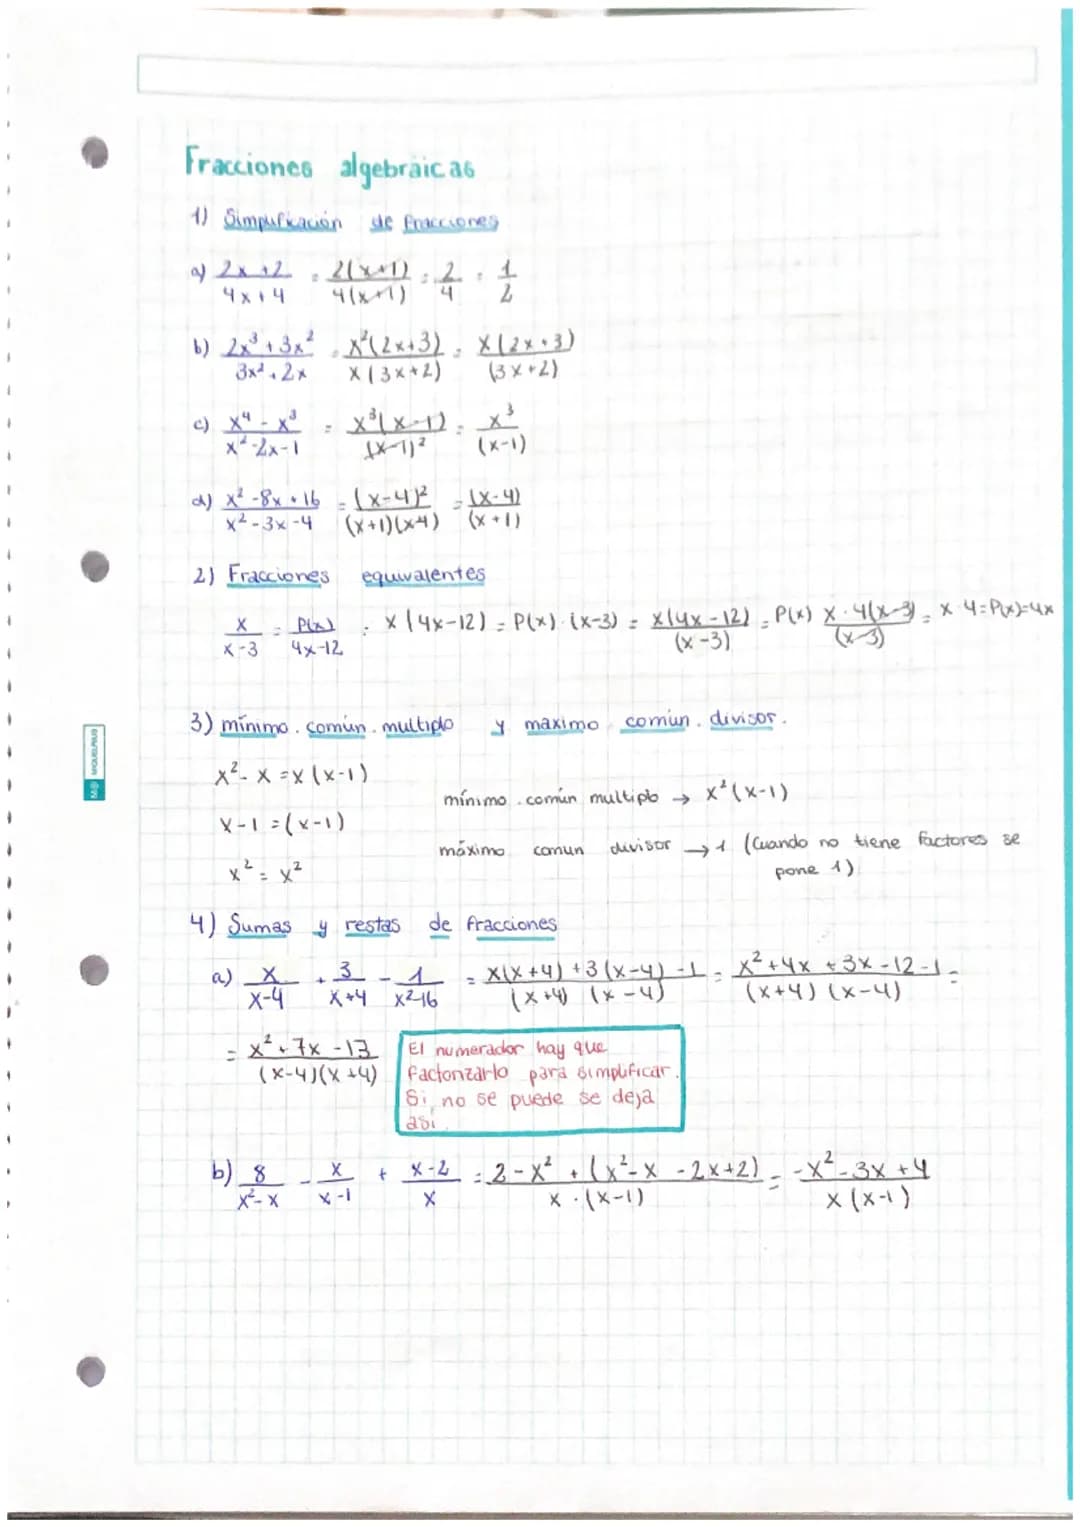 Fracciones algebraicas
1) Simplificación de fracciones
a) (2x+2)/(4x+4) = 2(x+1)/4(x+1) = 2/4 = 1/2
b) (2x³+3x²)/(3x²+2x) = x²(2x+3)/x(3x+2) = x(2x+3)/(3x+2)
c) (x⁴-x³)/(x²-2x-1) = x³(x-1)/(x-1)² = x³/(x-1)
d) (x²-8x+16)/(x²-3x-4) = (x-4)²/(x+1)(x-4) = (x-4)/(x+1)
2) Fracciones equivalentes
x/(x-3) = P(x)/(4x-12) : x(4x-12) = P(x)·(x-3) = x(4x-12)/(x-3) = P(x) x·4(x-3)/(x-3) = x·4=P(x)=4x
3) mínimo. común. multiplo y maximo común. divisor.
x²-x = x(x-1)
mínimo. común multiplo → x²(x-1)
x-1 = (x-1)
máximo comun divisor → 1 (Cuando no tiene factores se
pone 1)
x² = x²
4) Sumas y restas de fracciones
a) x/(x-4) + 3/(x+4) - 1/(x²-16) = (x(x+4)+3(x-4)-1)/(x+4)(x-4) = (x²+4x+3x-12-1)/(x+4)(x-4) =
= (x²+7x-13)/(x-4)(x+4)
El numerador hay que
factorizarlo para simplificar.
Si no se puede se deja
asi.
b) 8/(x²-x) - x/(x-1) + (x-2)/x = (2-x²+(x²-x-2x+2))/x·(x-1) = (-x²-3x+4)/x(x-1)
MIQUELRIUS